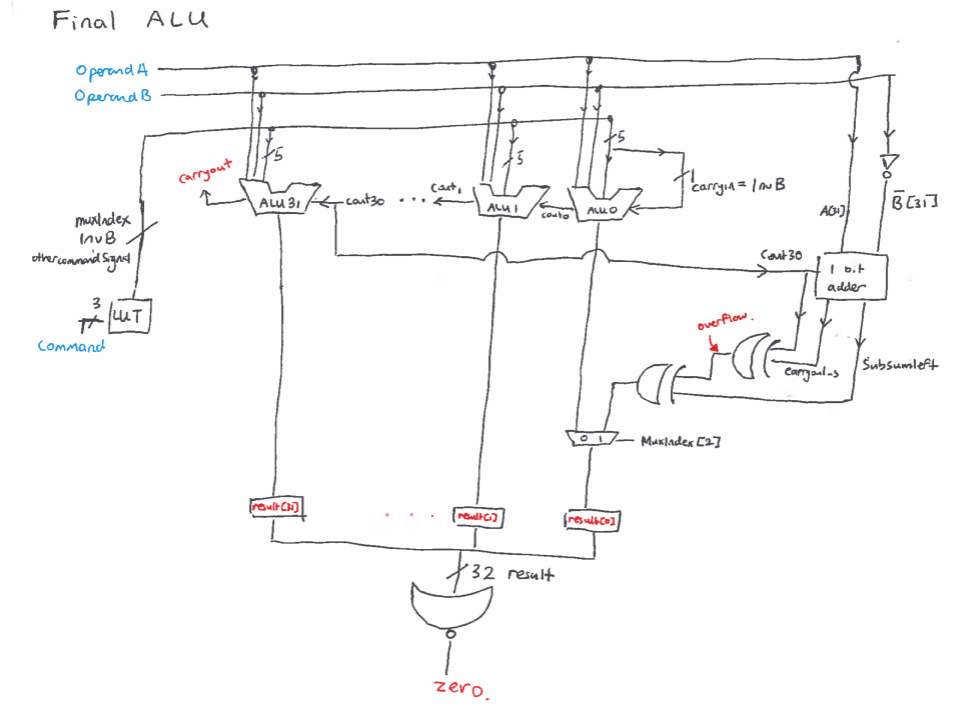 Final ALU
Operand A
Operand B
5
5
5
carryout
ALU31
cout30
...
Cout1
ALU1
cout0
ALU0
1
carryin = InvB
muxIndex
InvB
othercommandSignal
3
LUT
Command
A[31]
B̅[31]
Cout30
1 bit
adder
overflow.
carryout_s
Subsumleft
0 1
MuxIndex[2]
result[31]
...
result[1]
result[0]
32 result
zero.